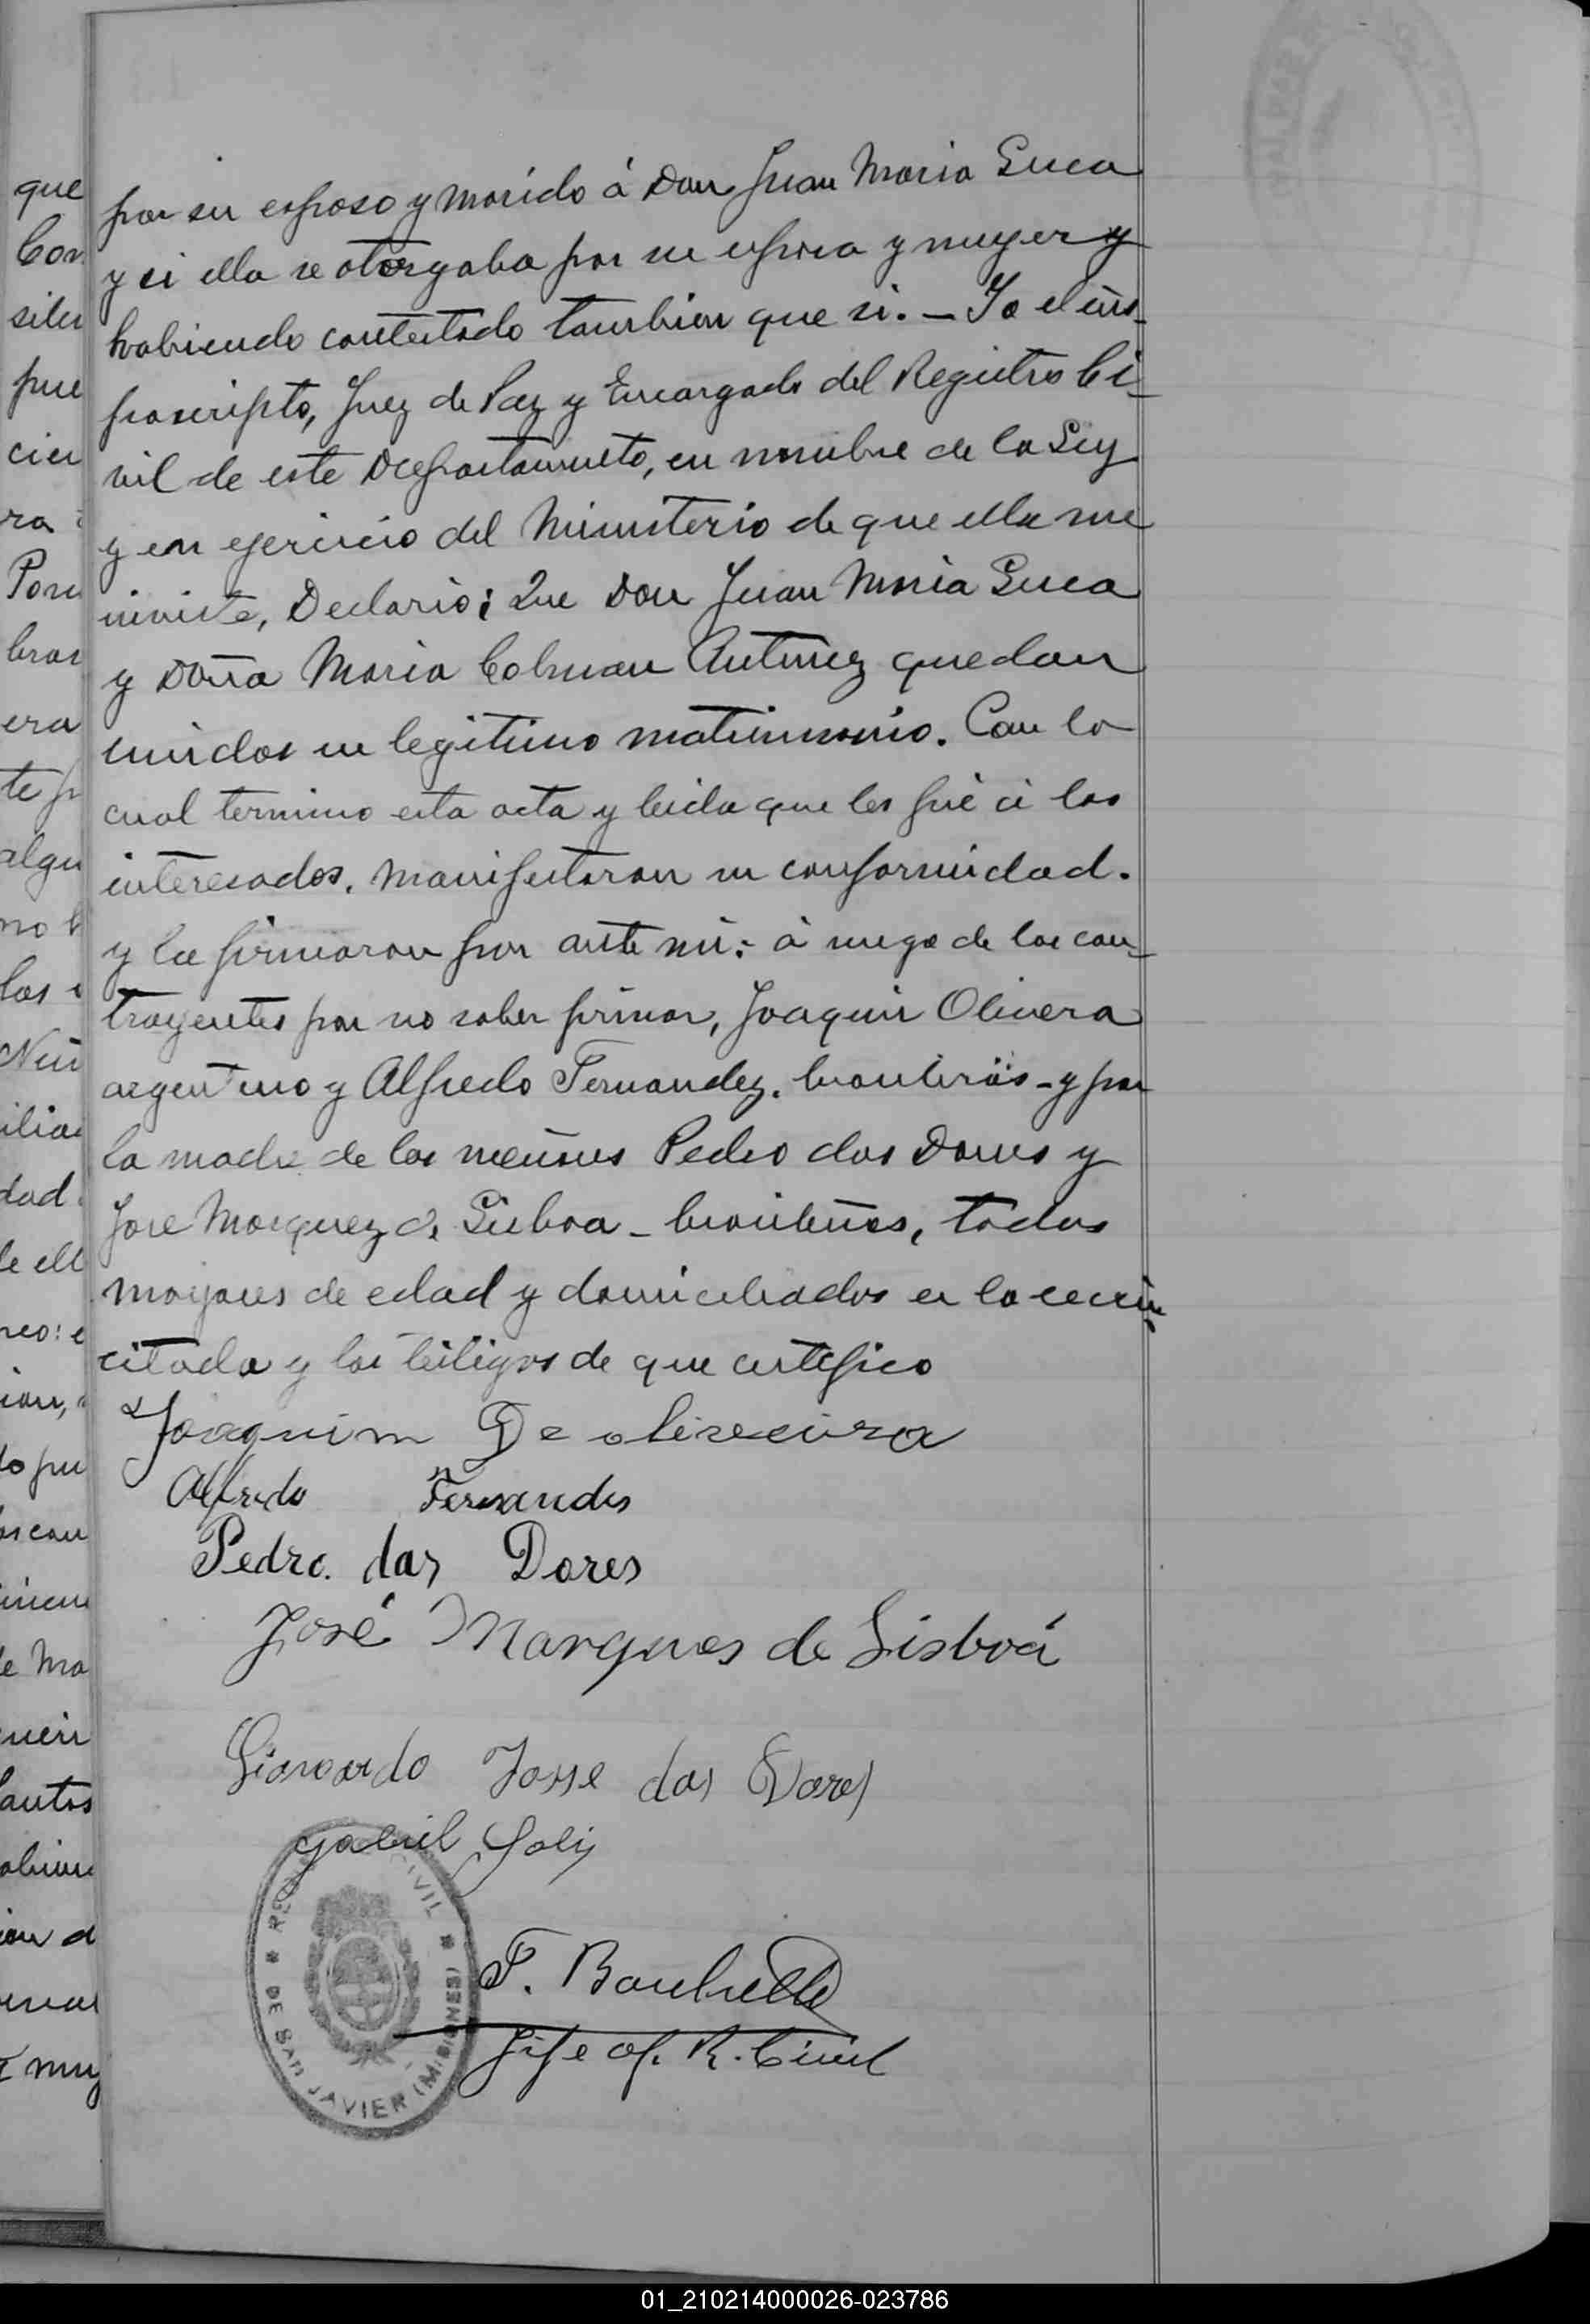 por su esposo y marido á Don Juan Maria Luca
y si ella se otorgaba por su esposa y muyer y
habiendo contestado tambien que si. — Yo el ins-
frascripto, Juez de Paz y Encargado del Registro Ci-
vil de este Departamento, en nombre de la Ley
y en ejercicio del Ministerio de que ella me
inviste, Declaro: Que Don Juan Maria Luca
y Doña Maria Colman Antunez quedan
unidos en legitimo matrimonio. Con lo
cual termino esta acta y leida que les fué á los
interesados, manifestaron su conformidad.
y la firmaron por ante mi: á ruego de los con-
trayentes por no saber firmar, Joaquin Olivera
argentino y Alfredo Fernandez, - y por
la madre de los Pedro das Dores y
Jose Marquez de Lisboa - todos
mayores de edad y domiciliados en la
citada y los testigos de que certifico
Joaquim De oliveira
Alfredo Fernandes
Pedro. das Dores
José Marques de Lisboá
Josse das Dores
Gabriel Solis
F.
Jefe of. R. Civil
REG CIVIL * DE SAN JAVIER (MISIONES) *
que
Con
silen
pue
cien
ra
bras
era
te p
algu
no
los
ilia
dad
de ell
neo: e
ion,
do pu
os con
de Ma
antos
ion d
muy
01_210214000026-023786